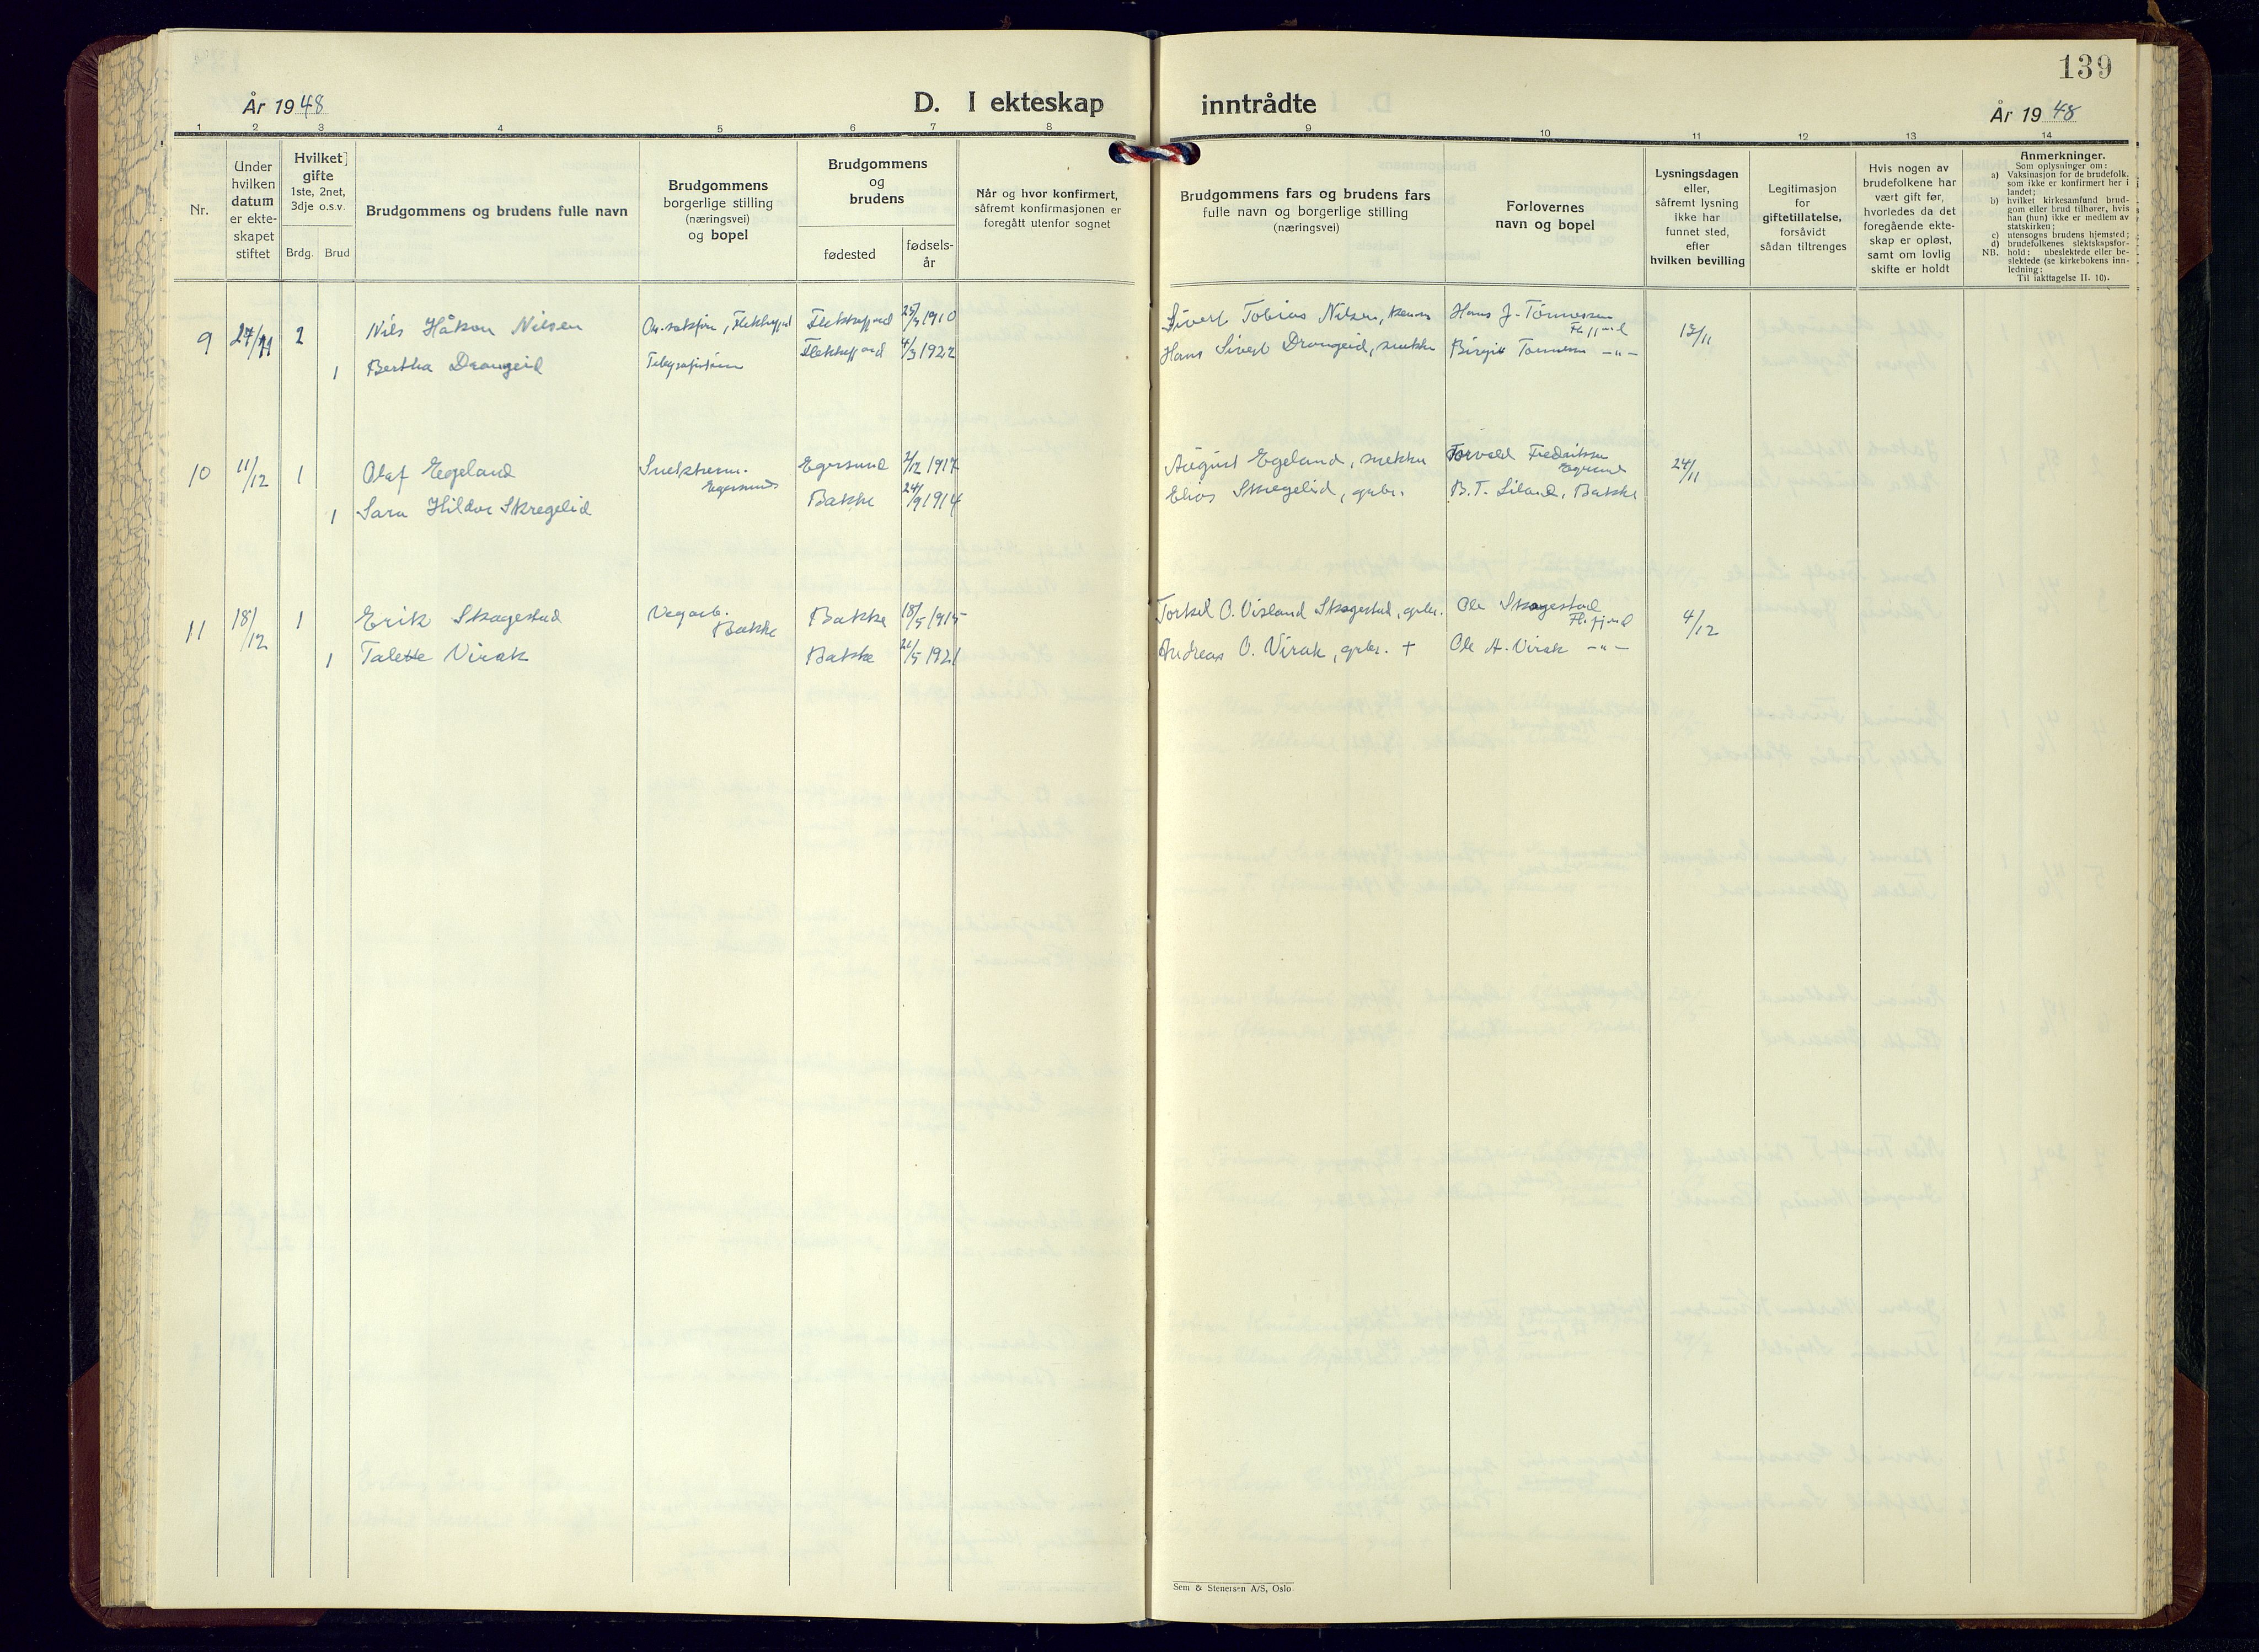 139
År 1948
D. I ekteskap inntrådte
År 1948
1 2 3 4 5 6 7 8 9 10 11 12 13 14
Nr.
Under hvilken datum er ekte-skapet stiftet
Hvilket gifte
1ste, 2net, 3dje o.s.v.
Brdg. Brud
Brudgommens og brudens fulle navn
Brudgommens borgerlige stilling (næringsvei) og bopel
Brudgommens og brudens
fødested
fødsels-år
Når og hvor konfirmert, såfremt konfirmasjonen er foregått utenfor sognet
Brudgommens fars og brudens fars fulle navn og borgerlige stilling (næringsvei)
Forlovernes navn og bopel
Lysningsdagen eller, såfremt lysning ikke har funnet sted, efter hvilken bevilling
Legitimasjon for giftetillatelse, forsåvidt sådan tiltrenges
Hvis nogen av brudefolkene har vært gift før, hvorledes da det foregående ekte-skap er opløst, samt om lovlig skifte er holdt
Anmerkninger.
Som oplysninger om:
a) Vaksinasjon for de brudefolk, som ikke er konfirmert her i landet;
b) hvilket kirkesamfund brud-gom eller brud tilhører, hvis han (hun) ikke er medlem av statskirken;
c) utensogns brudens hjemsted;
d) brudefolkenes slektskapsfor-hold: ubeslektede eller be-slektede (se kirkebokens inn-ledning:
NB. Til iakttagelse II. 10).
9 27/11 2 Nils Håkon Nilsen Flekkefjord Flekkefjord 1910 Sivert Tobias Nilsen, Hans J. Tønnessen 13/11
1 Bertha Drangeid Telegrafistinne Flekkefjord 4/3 1922 Hans Sivert Drangeid, snekker Birgit Tønnessen -"-
10 11/12 1 Olaf Egeland Snekkersv. Egersund Egersund 2/12 1917 August Egeland, snekker Torvald Fredriksen Egersund 24/11
1 Sara Hildur Skregelid Bakke 24/9 1914 Elias Skregelid, grbr. B.T. Liland, Bakke
11 18/12 1 Erik Skagestad Vegarb. Bakke Bakke 18/5 1915 Torkel O. Visland Skagestad, grbr. Ole Skagestad 4/12
1 Talette Virak Bakke 21/5 1921 Andreas O. Virak, grbr. + Ole A. Virak -"-
Sem & Stenersen A/S, Oslo.